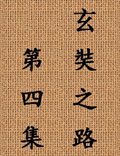 玄奘之路
第四集